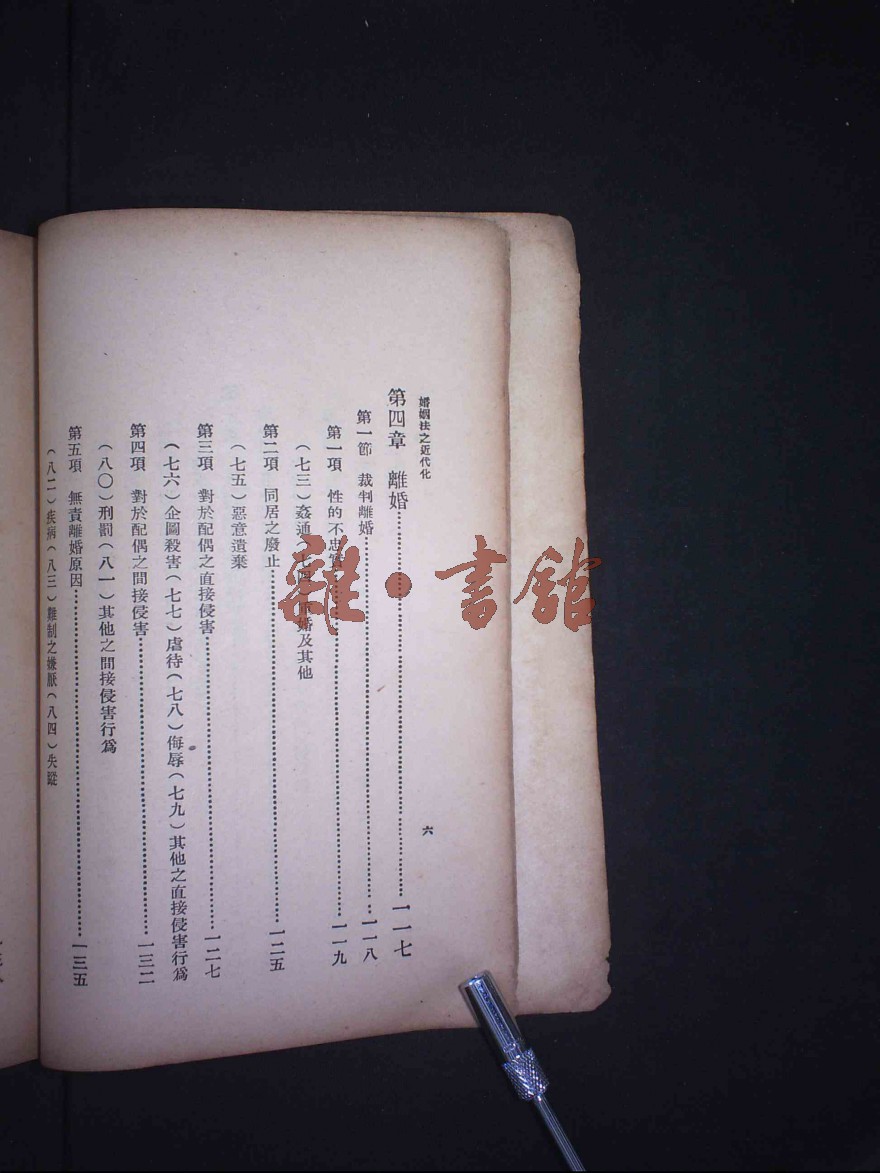 婚姻法之近代化
六
第四章 離婚……一一七
第一節 裁判離婚……一一八
第一項 性的不忠實……一一九
(七三)姦通(七四)重婚及其他
第二項 同居之廢止……一二五
(七五)惡意遺棄
第三項 對於配偶之直接侵害……一二七
(七六)企圖殺害(七七)虐待(七八)侮辱(七九)其他之直接侵害行爲
第四項 對於配偶之間接侵害……一三二
(八〇)刑罰(八一)其他之間接侵害行爲
第五項 無責離婚原因……一三五
(八二)疾病(八三)難制之嫌厭(八四)失蹤
雜·書館